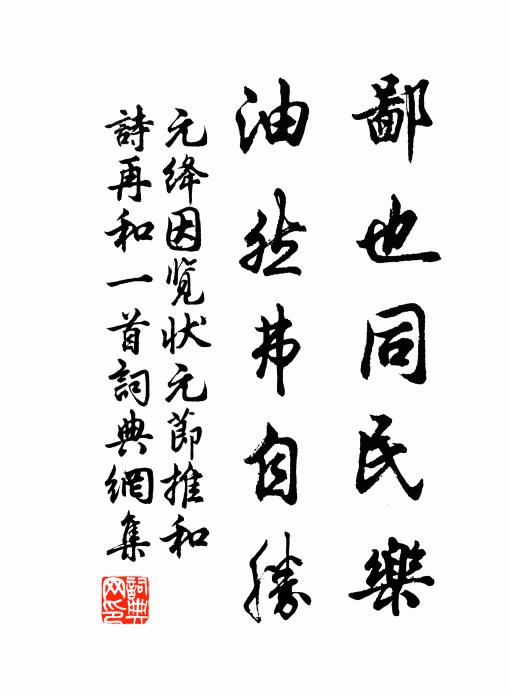 鄙也同民樂
油然弗自勝
元絳因覽状元節推和
詩再和一首詞典網集
詞典网印